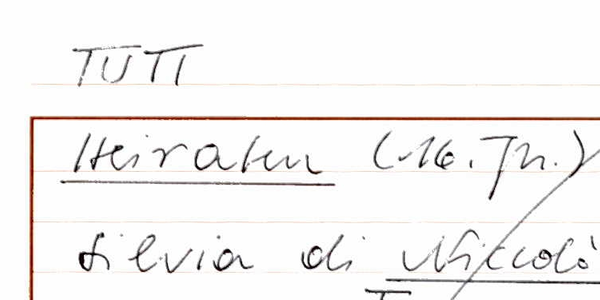 TUTI
Heiraten (16. Jh.)
Silvia di Niccolò